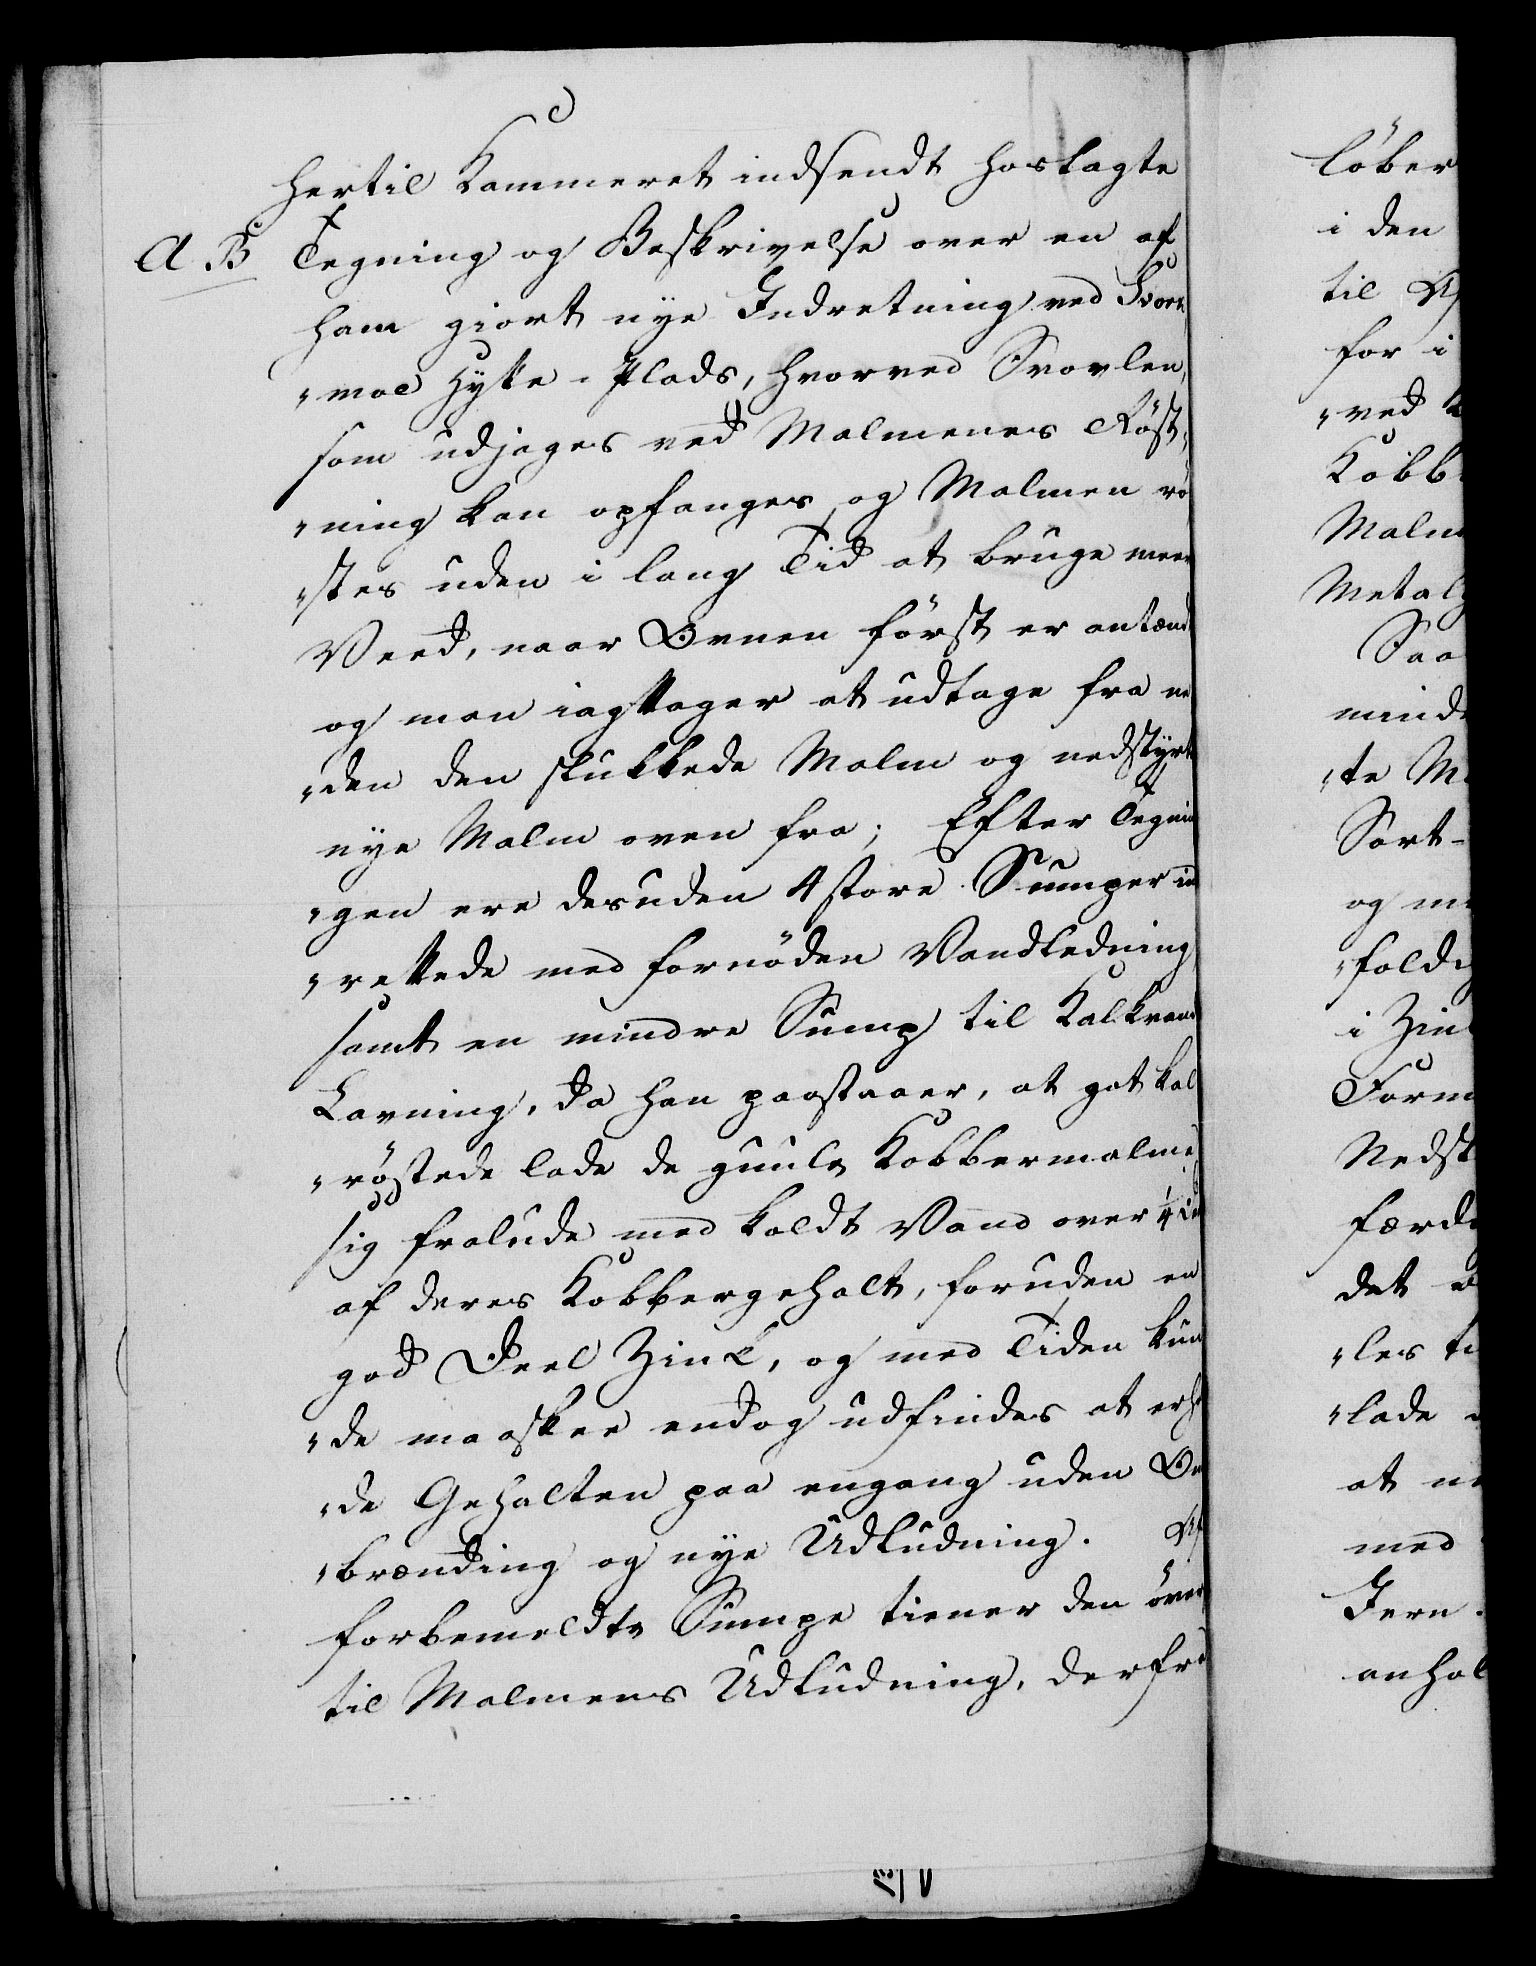 hertil Kammeret indsendt hoslagte
A. B Tegning og Beskrivelse over en af
ham giort nye Indretning ved Svork
„moe Hytte-Plads, hvorved Svovlen,
som udjages ved Malmenes Röst„
„ning kan opfanges, og Malmen rö
„stes uden i lang Tid at bruge meer
Veed, naar Ovnen först er antænd
og man iagttager at udtage fra ne
„den den slukkede Malm og nedstyrte
nye Malm oven fra; Efter Tegnin
„gen ere desuden 4 store Sumper ind
„rettede med fornöden Vandledning,
samt en mindre Sump til Kalkvand
Lavning, da han paastaaer, at got kal
„röstede lade de guule Kobbermalme
sig fralude med koldt Vand over 1/4
af deres Kobbergehalt, foruden en
god Deel Zink, og med Tiden kun
„de maaskee endog udfindes at erhol
„de Gehalten paa engang uden Om
„brænding og nye Udludning. Af
forbemeldte Sumpe tiener den över
til Malmens Udludning, derfra
löber
i den
til Af
for i
„ved
Kobb
Malm
Metal
Saa
minde
„te M
Sort-
og m
„foldig
i Zin
Form
Nedst
færdi
det
„les ti
„lade
at n
med
Jern.
anhol